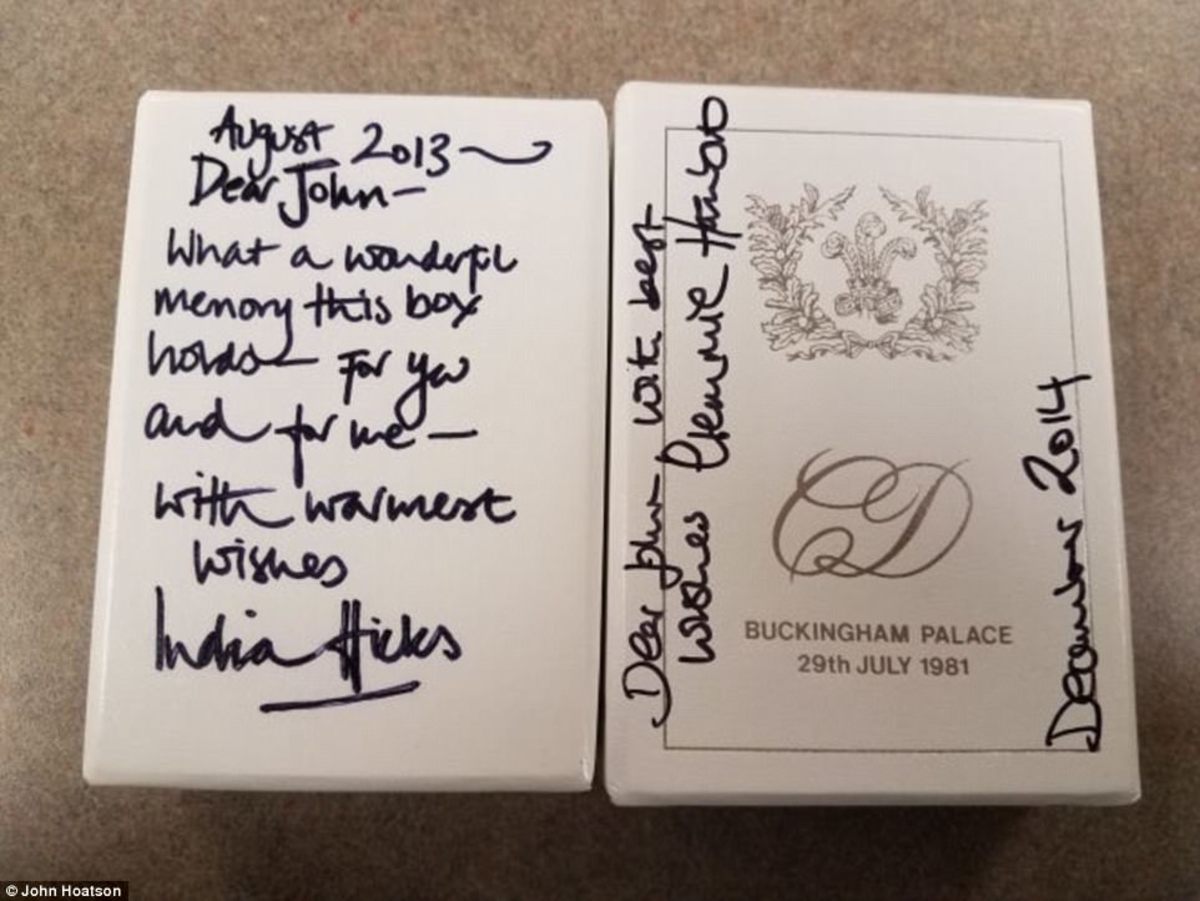 August 2013
Dear John –
What a wonderful
memory this box
holds – for you
and for me –
with warmest
wishes
India Hicks
Dear John - with best
wishes Clemmie Hambro
CD
BUCKINGHAM PALACE
29th JULY 1981
December 2014
© John Hoatson